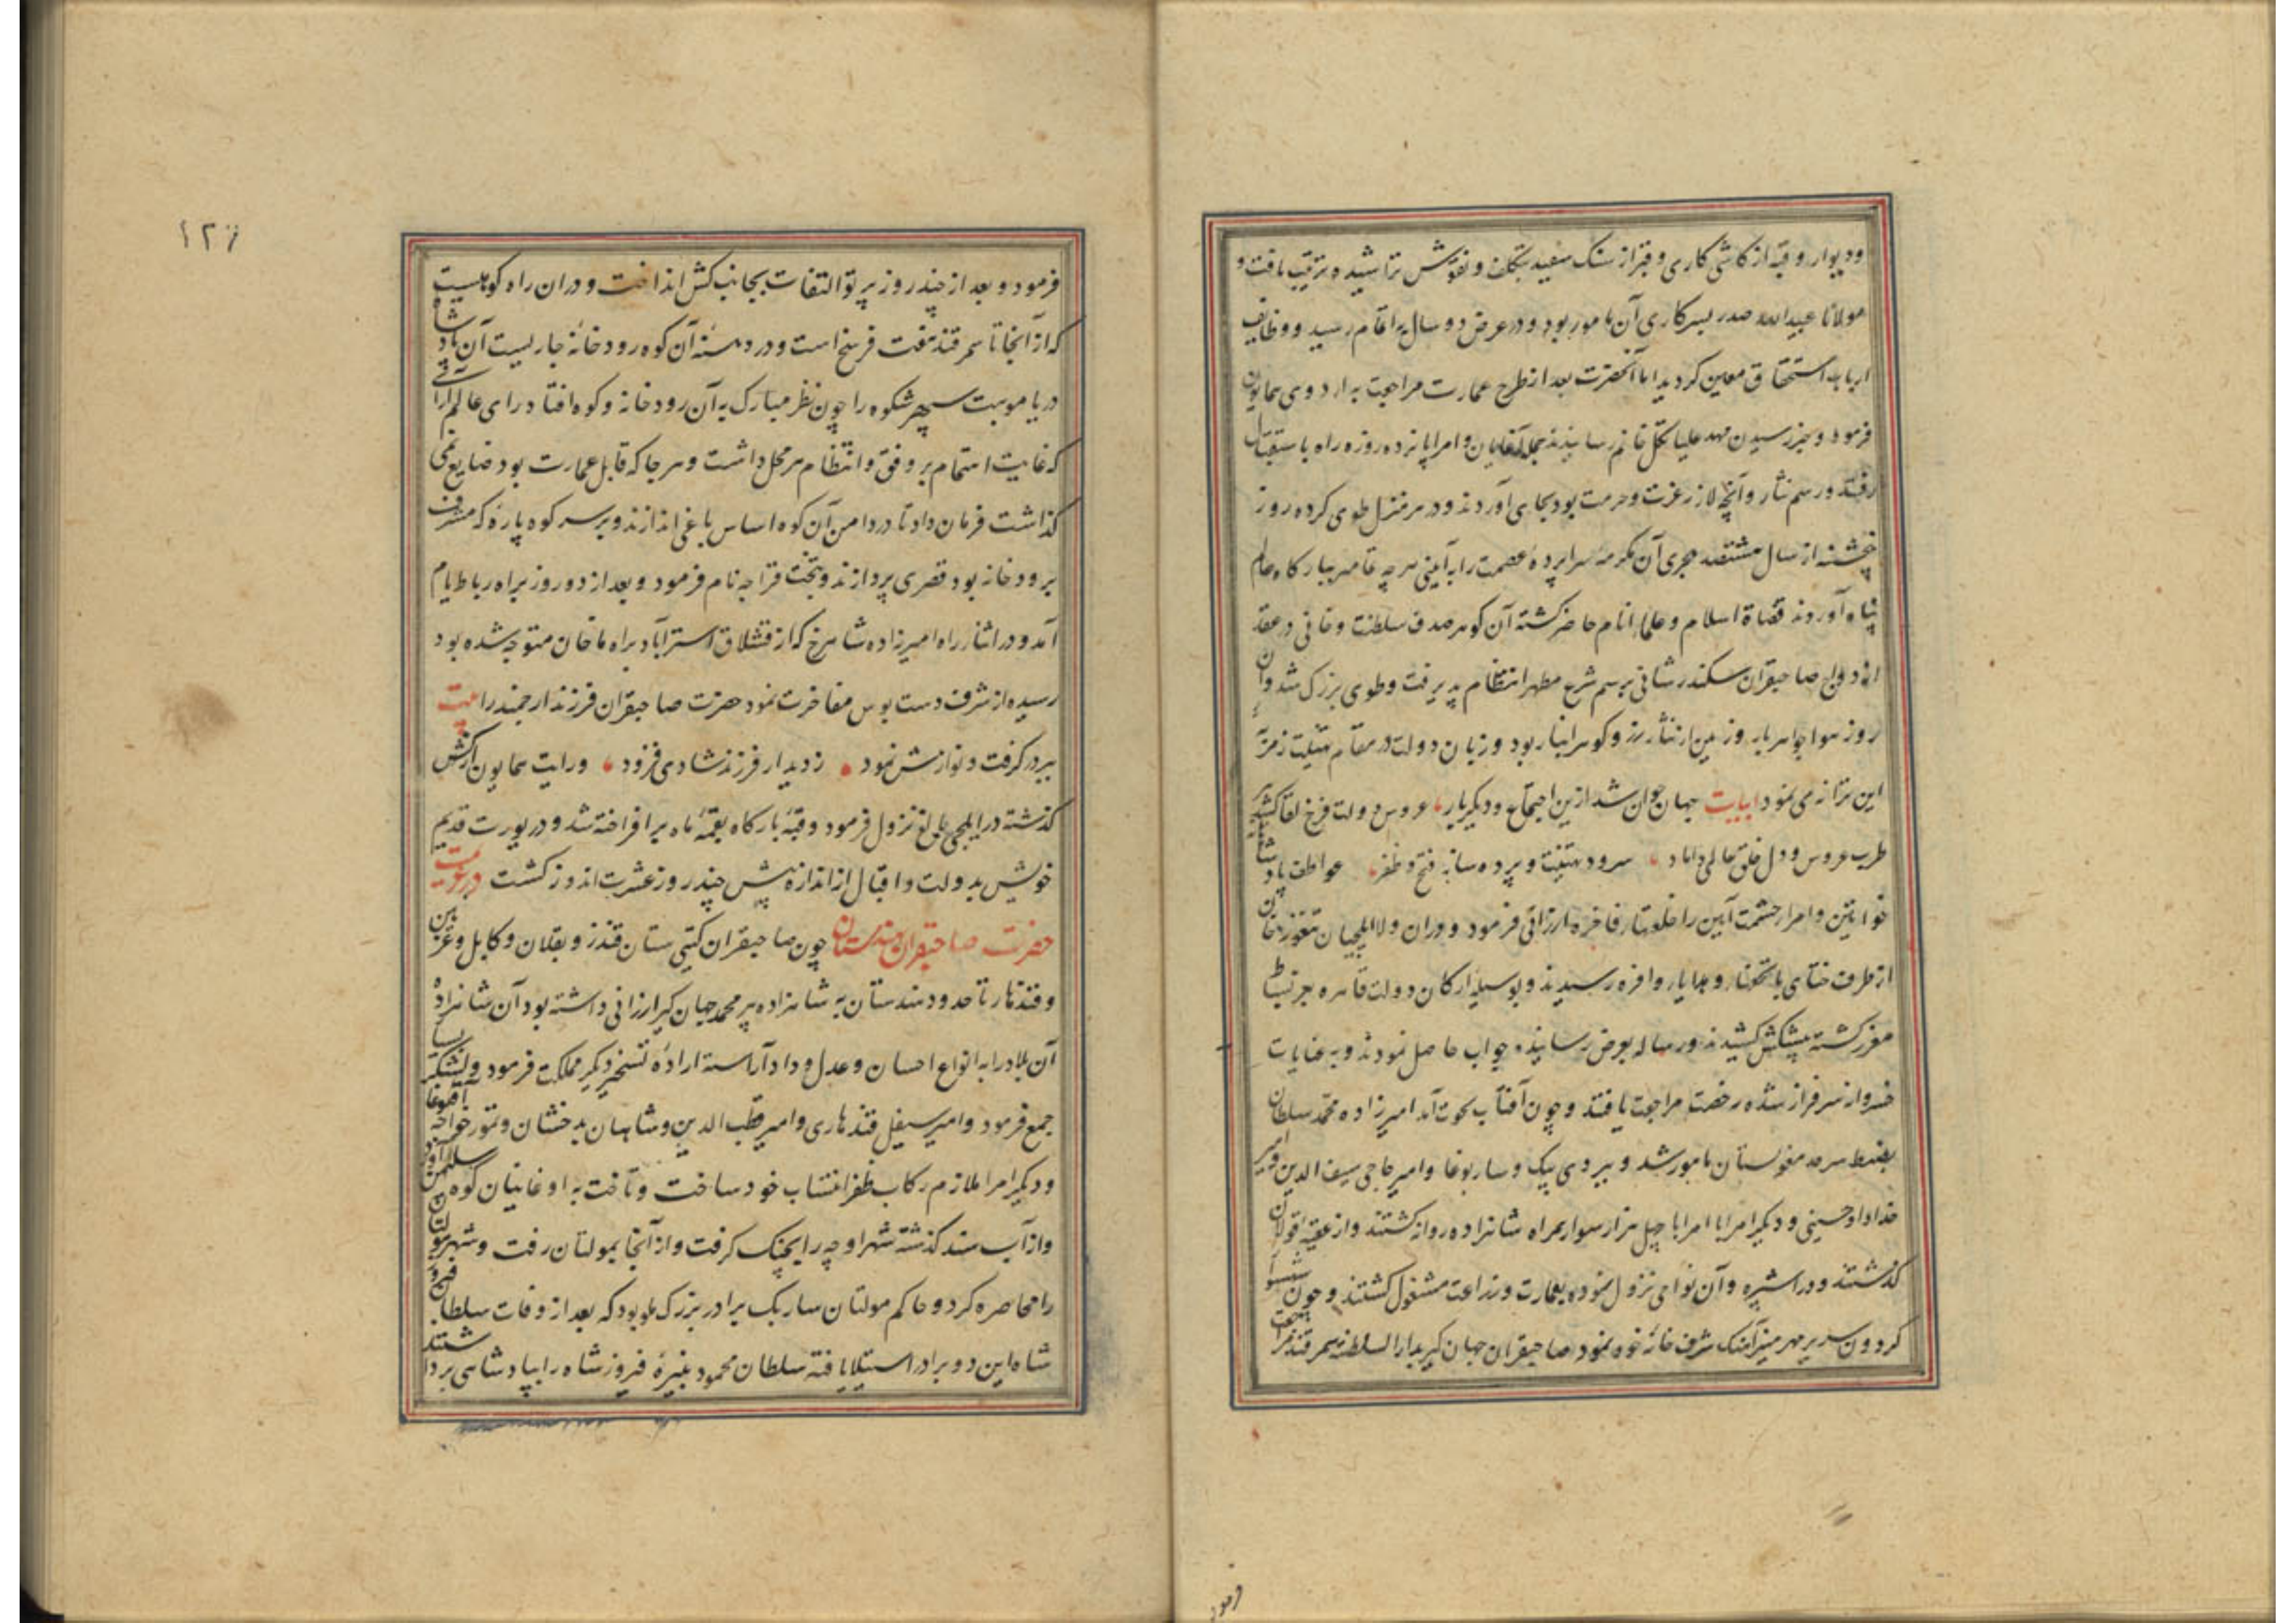 ودیوار و قبه از کاشی کاری و قبر از سنک سفید بتکلف و نقوش تراشیده ترتیب یافت و
مولانا عبیدالله صدر بسرکاری آن مامور بود و در عرض دو سال به اتمام رسید و وظایف
ارباب استحقاق معین کردید اما آنحضرت بعد از طرح عمارت مراجعت به اردوی همایون
فرمود و خبر رسیدن مهد علیا تکل خانم رسانیدند جمله آغایان و امرا پانزده روزه راه باستقبال
رفتند و رسم نثار و آنچه لازم عزت و حرمت بود بجای آوردند و در هر منزل طوی کرده روز
پنجشنبه از سال هشتصد هجری آن مکرمه سراپرده عصمت را به آیینی هر چه تمامتر ببارکاه عالم
پناه آوردند قضاة اسلام و علماء انام حاضر کشته آن کوهر صدف سلطنت و خانی در عقد
ازدواج صاحبقران سکندر شانی برسم شرع مطهر انتظام پذیرفت و طوی بزرک شد و آن
روز هوا جواهر بار و زمین از نثار زر و کوهر انبار بود و زبان دولت در مقام تهنیت زمزمه
این ترانه می نمود ابیات جهان جوان شد ازین اجتماع و دیکر بار عروس دولت فرخ لقا کشید
طرب عروس و دل خلق عالمی داماد سرود تهنیت و پرده ساز فتح و ظفر عواطف پادشاهانه
خواتین و امراء حشمت آیین را خلعتهاء فاخره ارزانی فرمود و دران ولا ایلچیان تنغوز خان
از طرف ختای با تحفها و هدایاء وافره رسیدند و بوسیله ارکان دولت قاهره بعز بساط
معزز کشته پیشکش کشیدند و رساله بعرض رسانیده جواب حاصل نمودند و به عنایات
خسروانه سرفراز شده رخصت مراجعت یافتند و چون آفتاب بحوت آمد امیرزاده محمد سلطان
بضبط سرحد مغولستان مامور شد و بیردی بیک و ساربوغا و امیر حاجی سیف الدین و امیر
خداداد حسینی و دیکر امرا با امرا با چهل هزار سوار همراه شاهزاده روانه کشتند و از عقبه اقولان
کذشتند و در اشپره و آن نواحی نزول نموده بعمارت و زراعت مشغول کشتند و چون شهسوار
کردون سریر مهر منیر آهنک شرف خانه خود نمود صاحبقران جهان کیر بدار السلطنه سمرقند مراجعت
فرمود
۱۲۶
فرمود و بعد از چند روز پرتو التفات بجانب کش انداخت و دران راه کوهیست
که از آنجا تا سمرقند هفت فرسخ است و در دهنه آن کوه رودخانه جاریست آن پادشاه
دریا موهبت سپهر شکوه را چون نظر مبارک به آن رودخانه و کوه افتاد رای عالم آرایی
که غایت اهتمام بر وفق و انتظام هر محل داشت و هر جا که قابل عمارت بود ضایع نمی
کذاشت فرمان داد تا در دامن آن کوه اساس باغی اندازند و بر سر کوه پاره که مشرف
برودخانه بود قصری پردازند و تخت قراجه نام فرمود و بعد از دو روز براه رباط یام
آمد و در اثناء راه امیرزاده شاهرخ که از قشلاق استرآباد براه ماخان متوجه شده بود
رسیده از شرف دست بوس مفاخرت نمود حضرت صاحبقران فرزند ارجمند را بیت
ببر در کرفت و نوازش نمود ز دیدار فرزند شادی فزود و رایت همایون از کش
کذشته در ایلچی بالغ نزول فرمود و قبه بارکاه بقمه ماه برافراخته شد و در یورت قدیم
خویش بدولت و اقبال از اندازه بیش چند روز عشرت اندوز کشت در عزیمت
حضرت صاحبقران هندوستان چون صاحبقران کیتی ستان قندز و بقلان و کابل و غزنین
و قندهار تا حدود هندستان به شاهزاده پیر محمد جهان کیر ارزانی داشته بود آن شاهزاده
آن بلاد را به انواع احسان و عدل و داد آراسته اراده تسخیر دیکر مملکت فرمود و لشکر بسیار
جمع فرمود و امیر سیفل قندهاری و امیر قطب الدین و شاهان بدخشان و تمور خواجه آقبوغا
و دیکر امرا ملازم رکاب ظفر انتساب خود ساخت و تاخت به اوغانیان کوه سلیمن آورد
و از آب سند کذشته شهر اوچه را بجنک کرفت و از آنجا بمولتان رفت و شهر مولتان
را محاصره کرد و حاکم مولتان سارنک برادر بزرک ملو بود که بعد از وفات سلطان فیروز
شاه این دو برادر استیلا یافته سلطان محمود نبیره فیروز شاه را بپادشاهی برداشتند